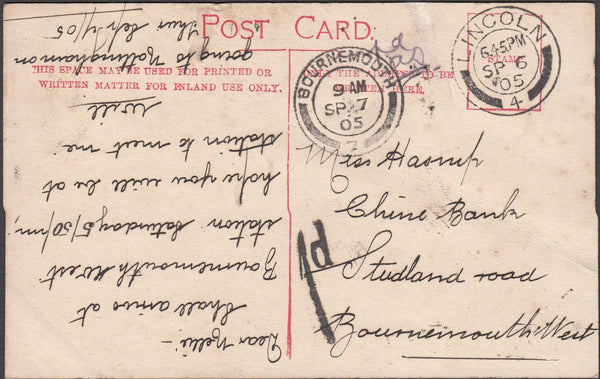 POST CARD.
THIS SPACE MAY BE USED FOR PRINTED OR
WRITTEN MATTER FOR INLAND USE ONLY.
ONLY THE ADDRESS TO BE
WRITTEN HERE.
STAMP
LINCOLN
6.45PM
SP 6
05
4
BOURNEMOUTH
9 AM
SP 7
05
7
1d
Miss Haskup
Chine Bank
Studland road
Bournemouth West
Dear Nellie -
Shall arrive at
Bournemouth West
station Saturday 5/30/pm,
hope you will be at
station to meet me.
Will
going to Nottingham on
thur Sep 7/05